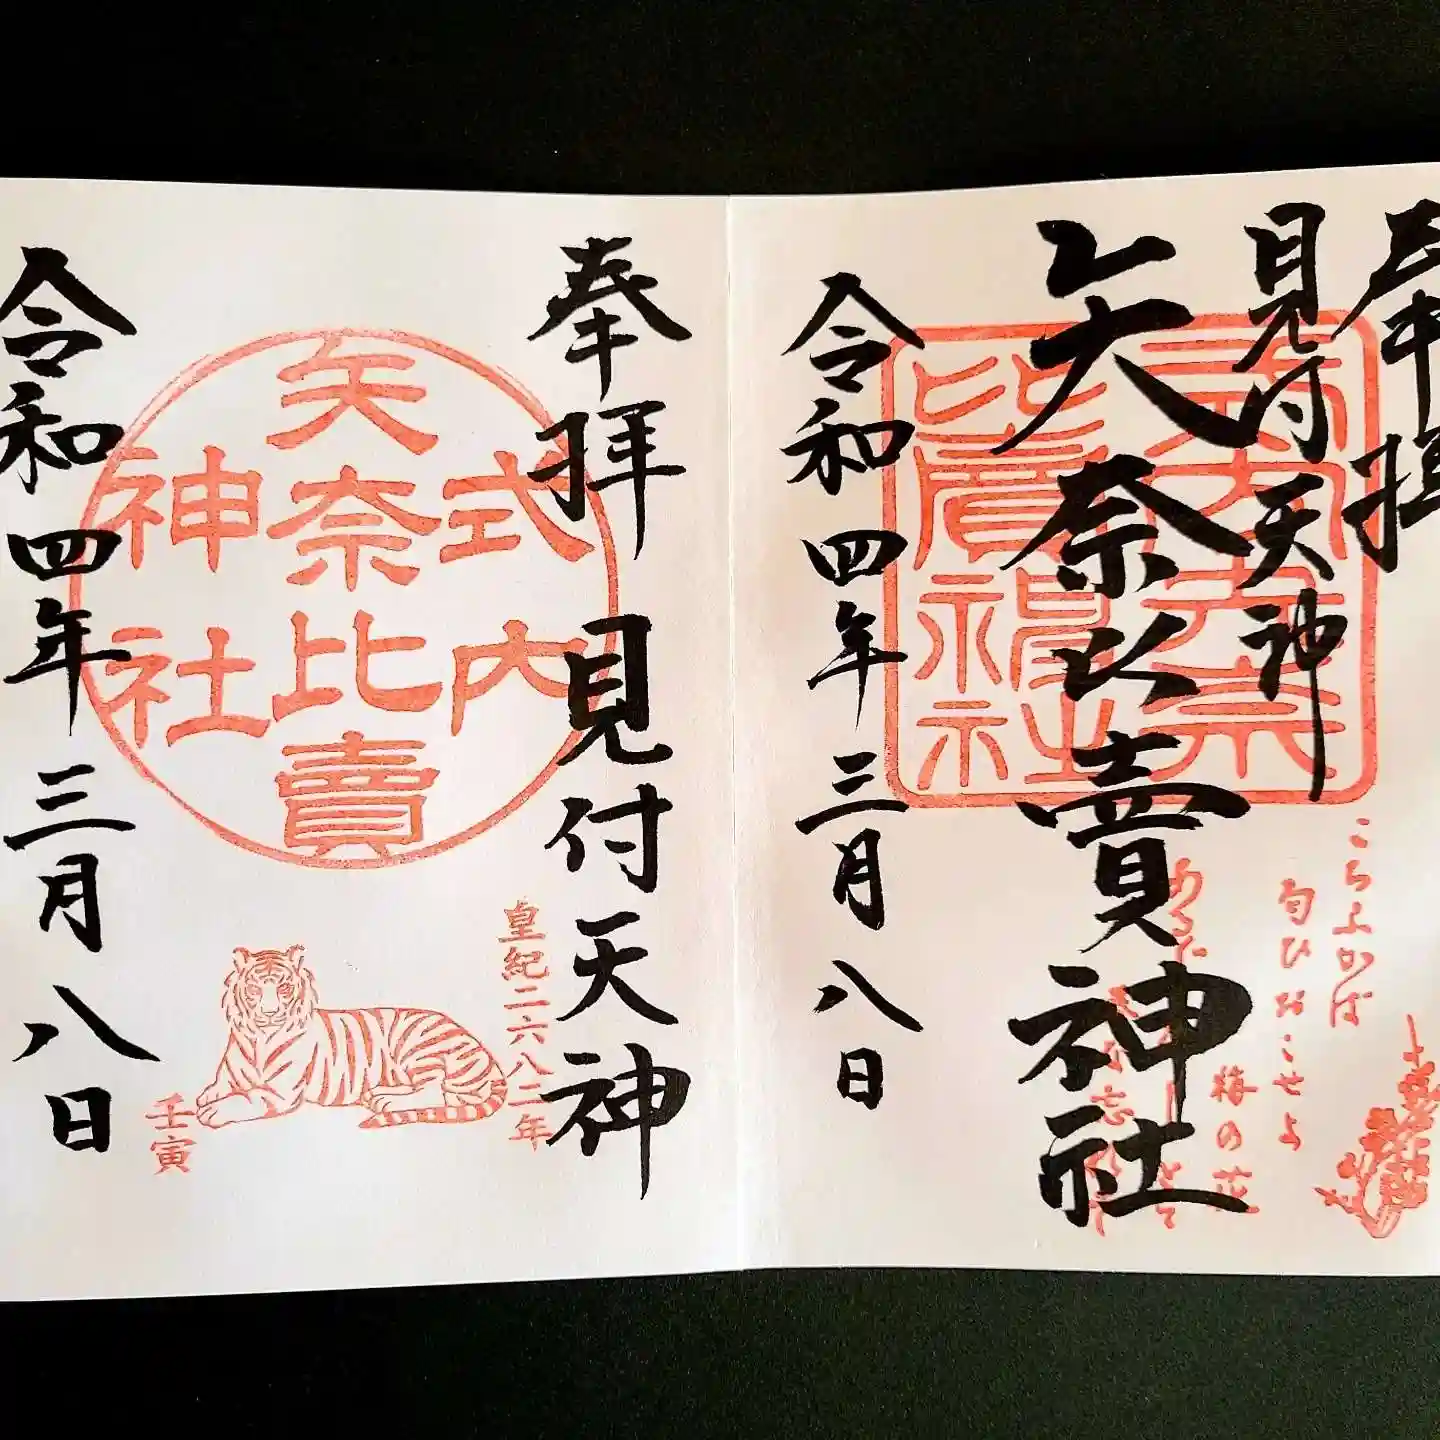 奉拝
見付天神
矢奈比賣神社
令和四年三月八日
こちふかば
匂ひおこせよ
梅の花
奉拝 見付天神
令和四年三月八日
式内
矢奈比賣
神社
皇紀二六八二年
壬寅